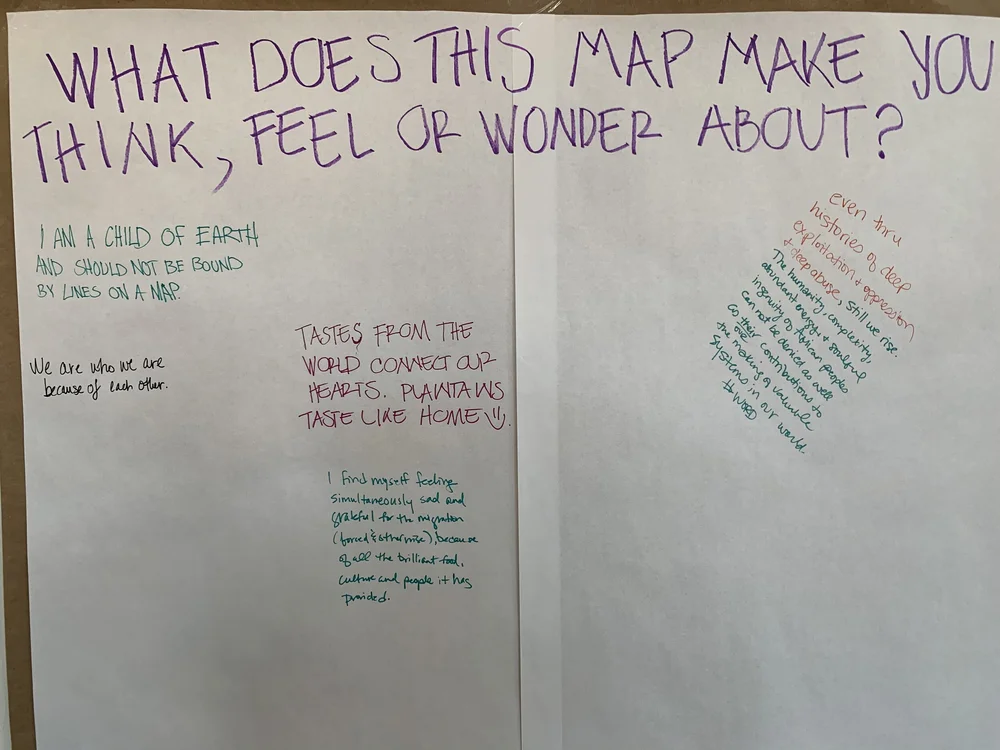 WHAT DOES THIS MAP MAKE YOU
THINK, FEEL OR WONDER ABOUT?
I AM A CHILD OF EARTH
AND SHOULD NOT BE BOUND
BY LINES ON A MAP.
We are who we are
because of each other.
TASTES FROM THE
WORLD CONNECT OUR
HEARTS. PLANTAINS
TASTE LIKE HOME
I find myself feeling
simultaneously sad and
grateful for the migration
(forced & otherwise), because
of all the brilliant food,
culture and people it has
provided.
even thru
histories of deep
exploitation + oppression
+ deep abuse, still we rise.
The humanity, complexity,
abundant energy + soulful
ingenuity of African peoples
can not be denied as well
as their contributions to
the making of valuable
systems in our world.
#WORD